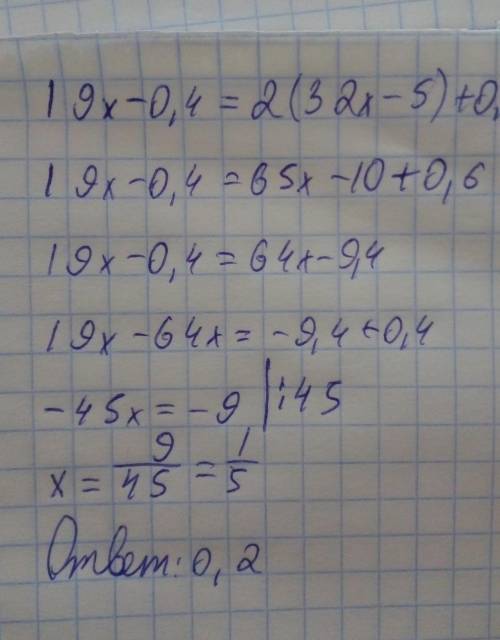 19x-0,4=2(32x-5)+0,
19x-0,4=65x-10+0,6
19x-0,4=64x-9,4
19x-64x=-9,4+0,4
-45x=-9 |:45
x=9/45=1/5
Ответ: 0,2